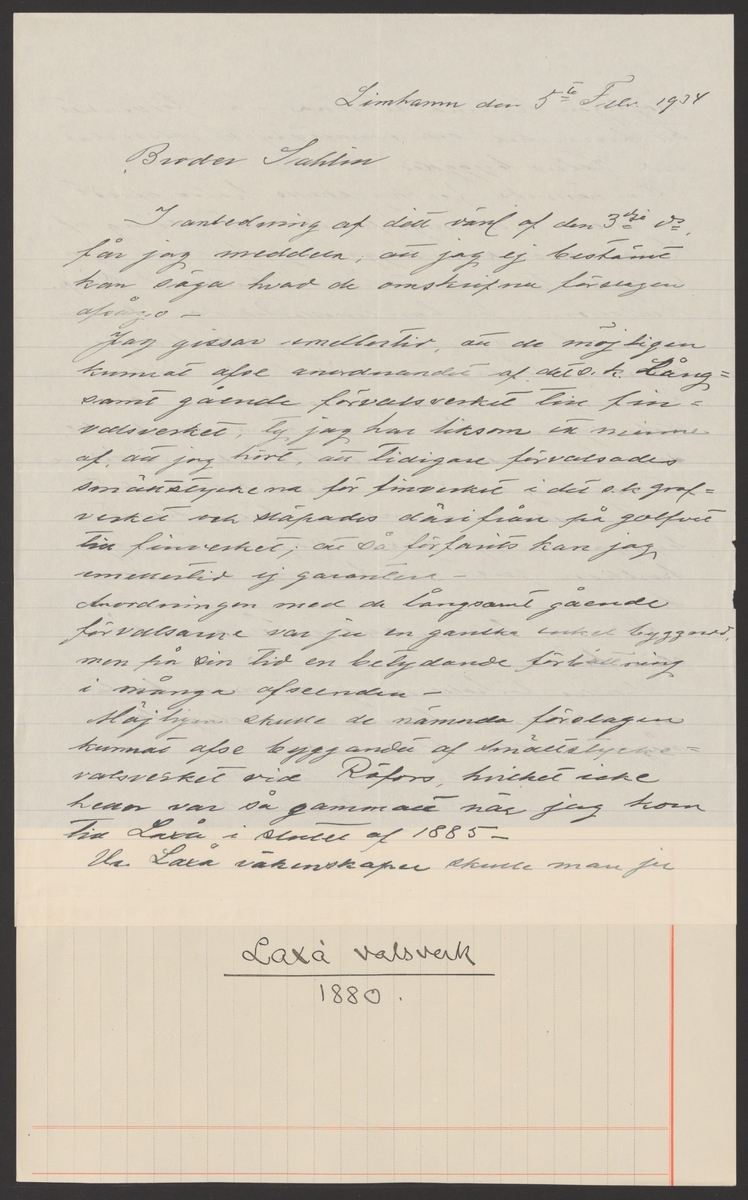 Limhamn den 5te Febr. 1934
Broder Sahlin
I anledning af ditt värd af den 3dje ds.
får jag meddela, att jag ej bestämt
kan säga hvad de omskrifna förslagen
afsågo –
Jag gissar emellertid, att de möjligen
kunnat afse anordnandet af det s.k. Lång=
samt gående förvalsverket till fin=
valsverket, ty jag har liksom ett minne
af, att jag hört, att tidigare förvalsades
smältstyckena för finverket i det s.k. grof=
verket och släpades därifrån på golfvet
till finverket; att så förfarits kan jag
emellertid ej garantera –
Anordningen med de långsamt gående
förvalsarne var ju en ganska enkel byggnad,
men på sin tid en betydande förbättring
i många afseenden –
Möjligen skulle de nämnda förslagen
kunnat afse byggandet af smältstycke=
valsverket vid Röfors, hvilket icke
heller var så gammalt när jag kom
till Laxå i slutet af 1885 –
Ur Laxå räkenskaper skulle man ju
Laxå valsverk
1880.